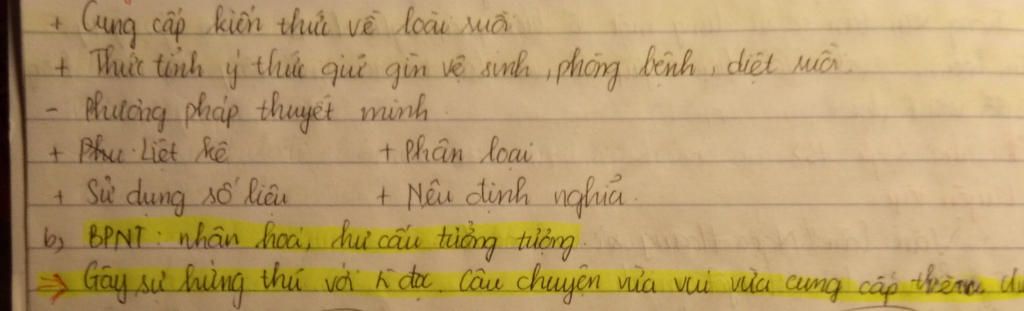 + Cung cấp kiến thức về loài ruồi
+ Thức tỉnh ý thức giữ gìn vệ sinh, phòng bệnh, diệt ruồi.
- Phương pháp thuyết minh
+ Liệt kê + Phân loại
+ Sử dụng số liệu + Nêu định nghĩa.
b, BPNT: nhân hoá, hư cấu tưởng tượng.
⇒ Gây sự hứng thú với đọc. Câu chuyện vừa vui vừa cung cấp thêm